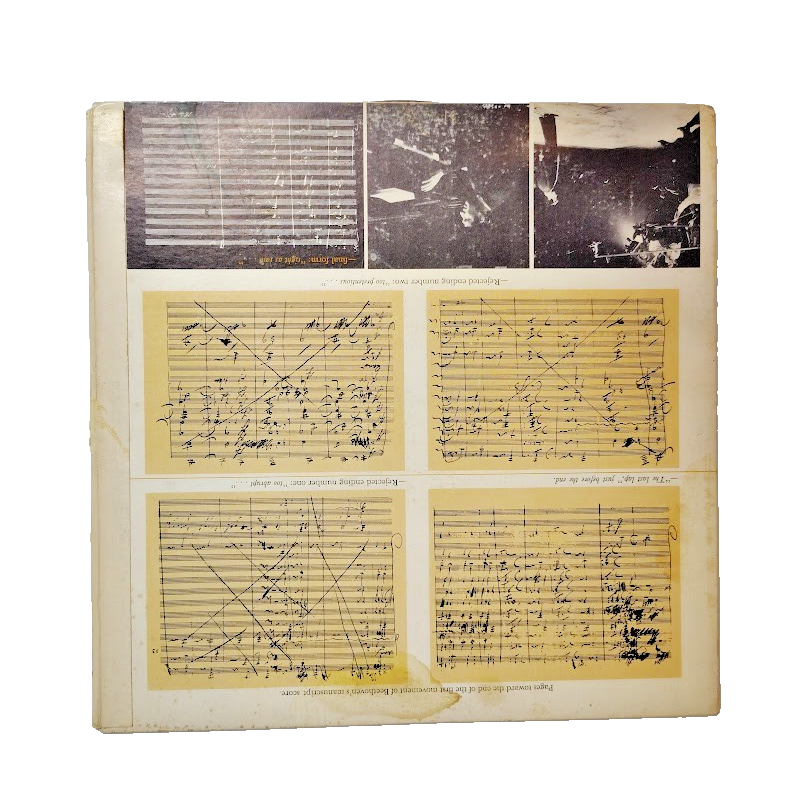 Pages toward the end of the first movement of Beethoven's manuscript score.
—"The last lap," just before the end.
—Rejected ending number one: "too abrupt . . ."
—Rejected ending number two: "too pretentious . . ."
—final form: "right as rain . . ."